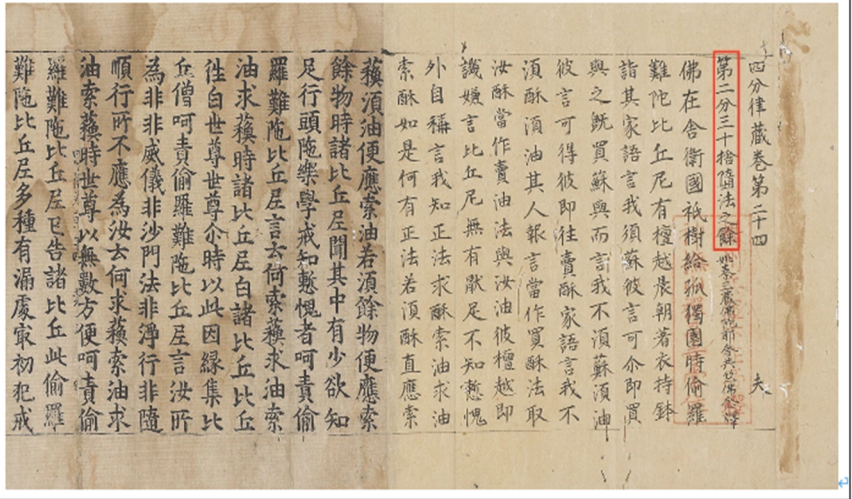 四分律藏卷第二十四 夫
第二分三十捨墮法之餘 姚秦三藏佛陀耶舍共竺佛念譯
佛在舍衛國祇樹給孤獨園時偷羅
難陀比丘尼有檀越晨朝著衣持鉢
詣其家語言我須蘇彼言可尒即買
與之旣買蘇與而言我不湏蘇湏油
彼言可得彼即往賣酥家語言我不
湏酥湏油其人報言當作買酥法取
汝酥當作賣油法與汝油彼檀越即
譏嫌言比丘尼無有猒足不知慙愧
外自稱言我知正法求酥索油求油
索酥如是何有正法若湏酥直應索
蘓湏油便應索油若湏餘物便應索
餘物時諸比丘尼聞其中有少欲知
足行頭陁樂學戒知慙愧者呵責偷
羅難陁比丘尼言云何索蘓求油索
油求蘓時諸比丘尼白諸比丘比丘
徃白世尊世尊尒時以此因緣集比
丘僧呵責偷羅難陁比丘尼言汝所
為非非威儀非沙門法非淨行非隨
順行所不應為汝云何求蘓索油求
油索蘓時世尊以無數方便呵責偷
羅難陁比丘尼已告諸比丘此偷羅
難陁比丘尼多種有漏處㝡初犯戒